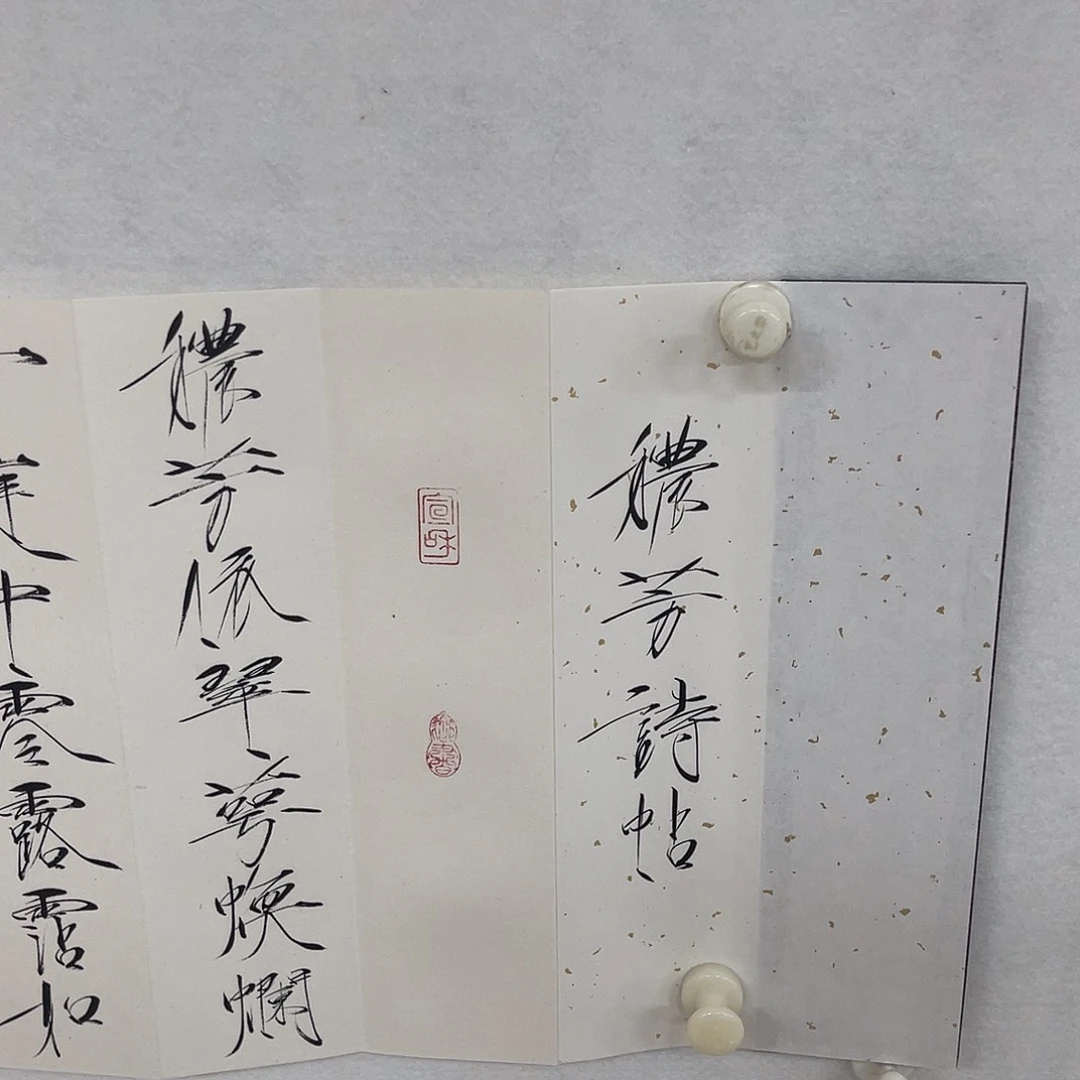 穠芳詩帖
宣和
穠芳依翠萼煥爛
一庭中零露霑如